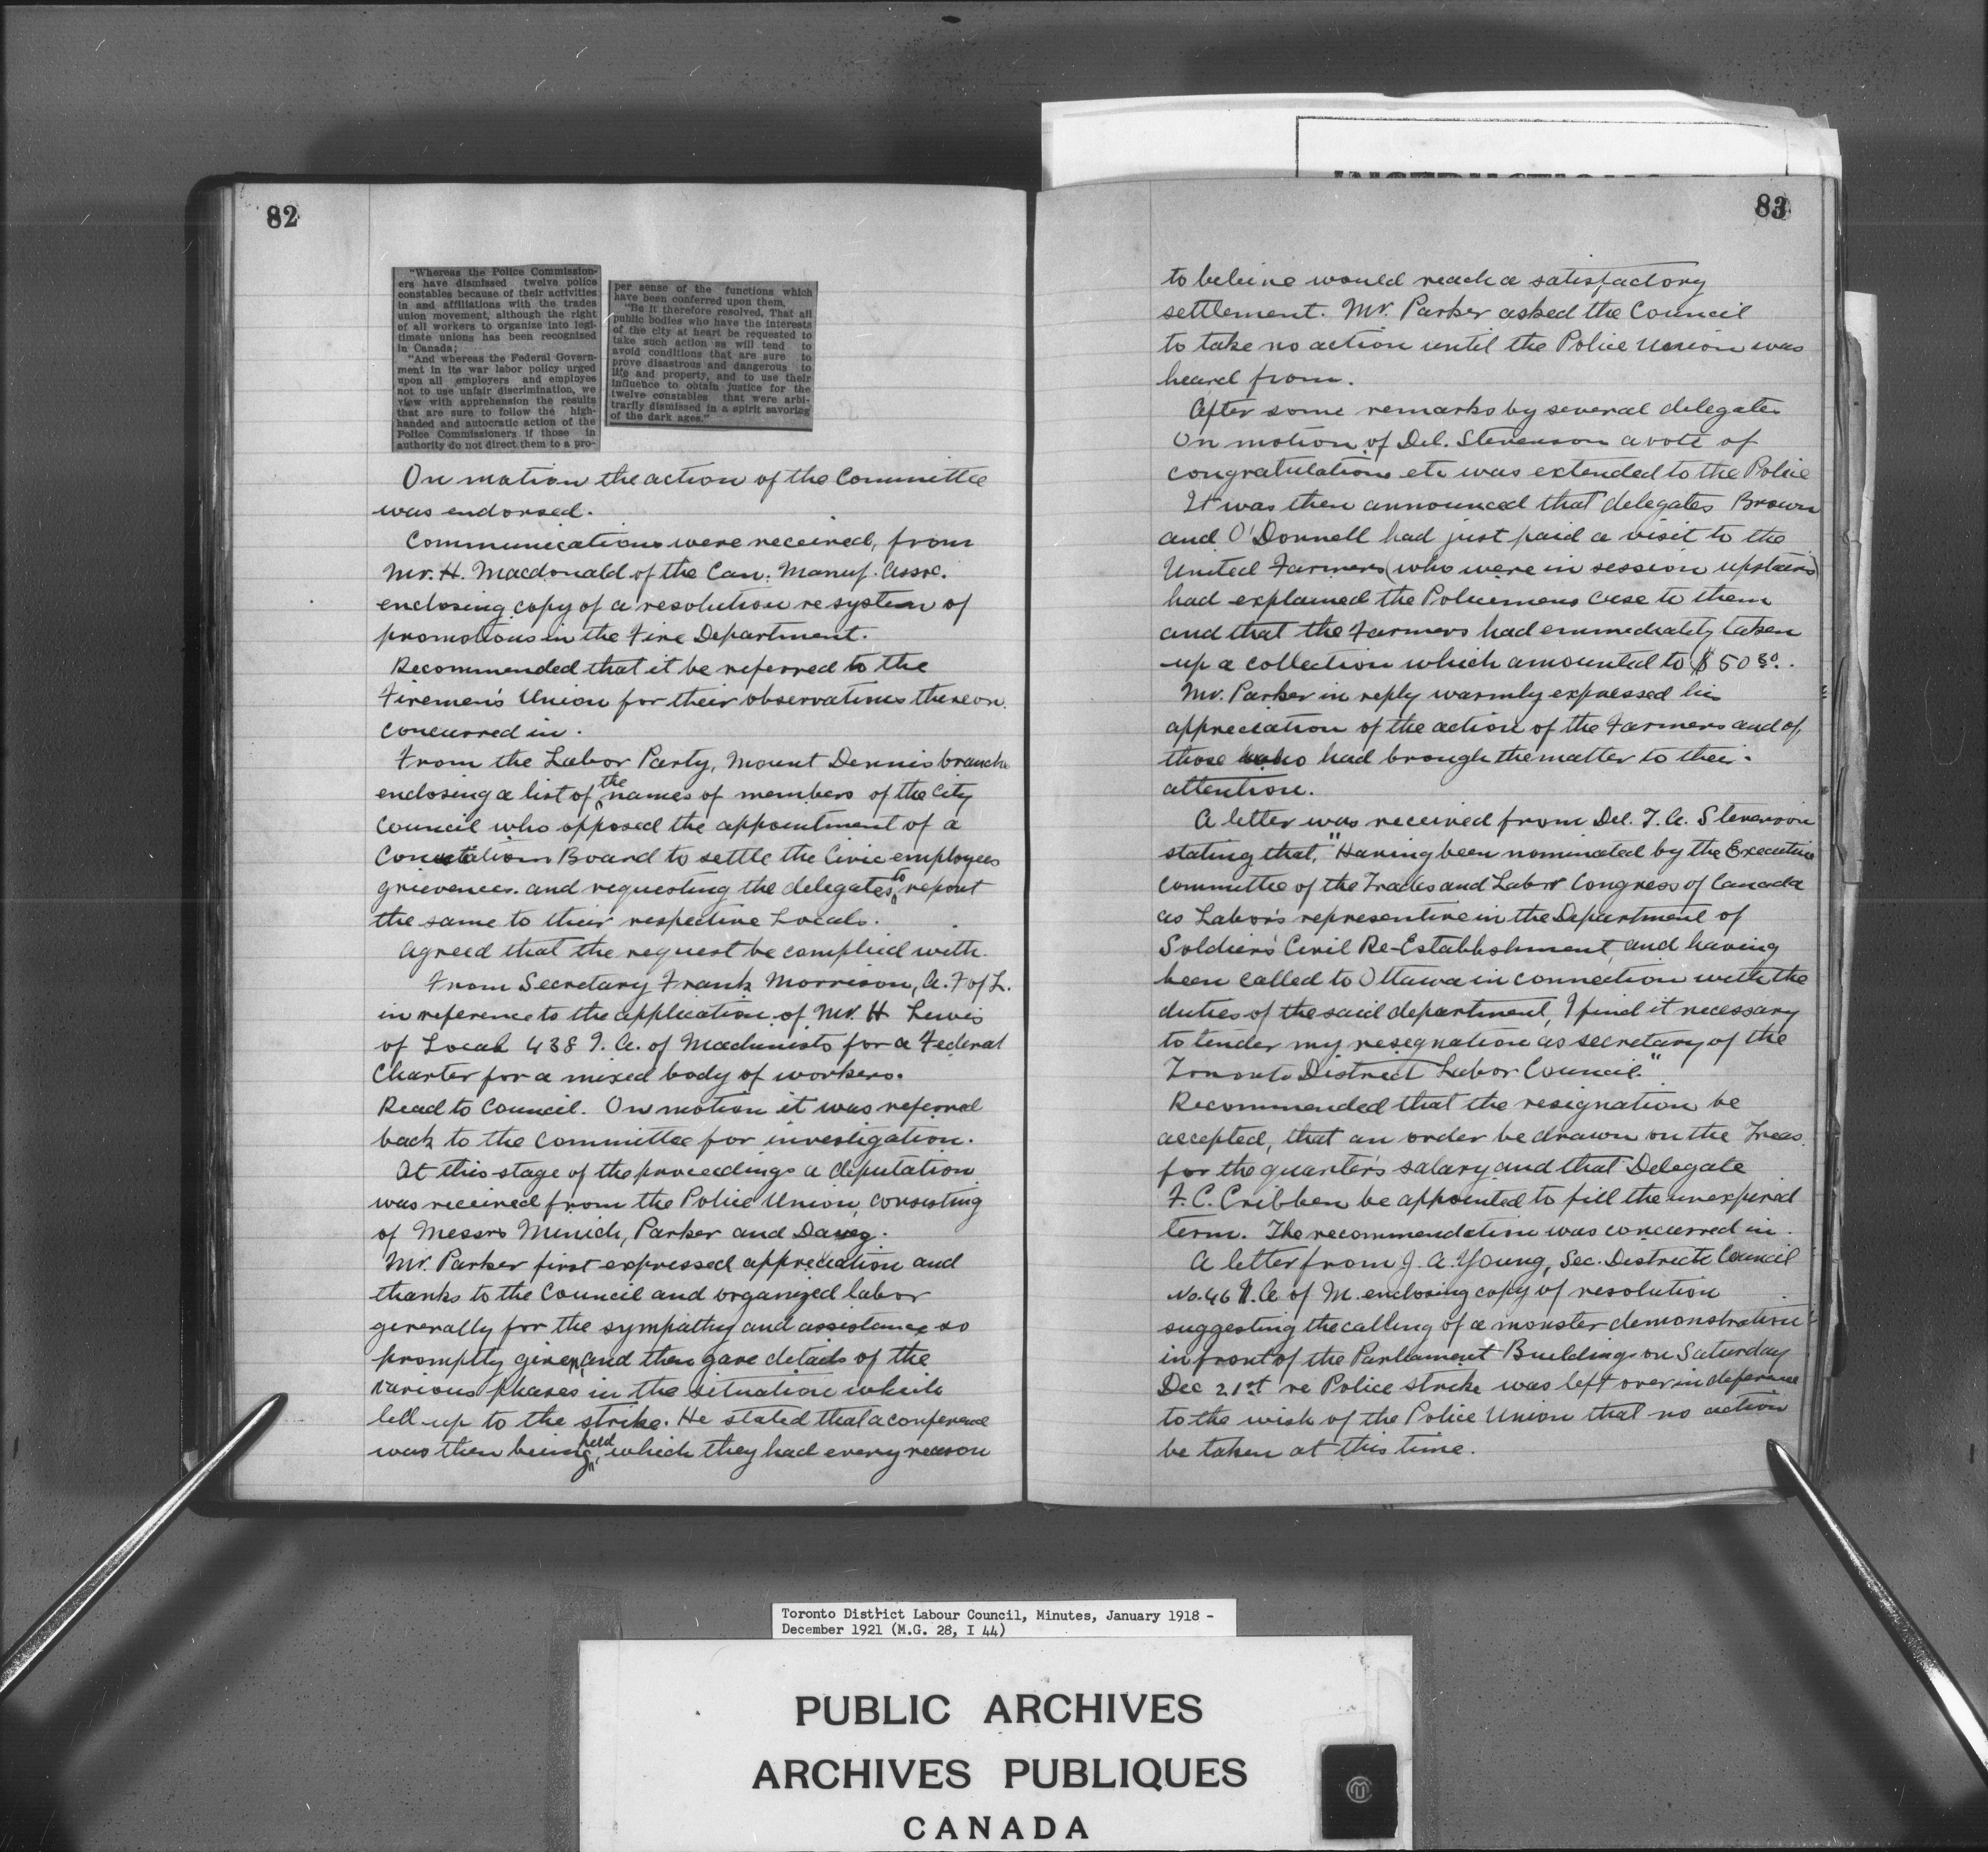 82
"Whereas the Police Commission-
ers have dismissed twelve police
constables because of their activities
in and affiliations with the trades
union movement, although the right
of all workers to organize into legi-
timate unions has been recognized
in Canada;
"And whereas the Federal Govern-
ment in its war labor policy urged
upon all employers and employes
not to use unfair discrimination, we
view with apprehension the results
that are sure to follow the high-
handed and autocratic action of the
Police Commissioners if those in
authority do not direct them to a pro-
per sense of the functions which
have been conferred upon them.
"Be it therefore resolved, That all
public bodies who have the interests
of the city at heart be requested to
take such action as will tend to
avoid conditions that are sure to
prove disastrous and dangerous to
life and property, and to use their
influence to obtain justice for the
twelve constables that were arbi-
trarily dismissed in a spirit savoring
of the dark ages."
On motion the action of the Committee
was endorsed.
Communications were received, from
Mr. H. Macdonald of the Can. Manuf. Assoc.
enclosing copy of a resolution re system of
promotions in the Fire Department.
Recommended that it be referred to the
Firemen's Union for their observations thereon.
Concurred in.
From the Labor Party, Mount Dennis branch
enclosing a list of the names of members of the City
Council who opposed the appointment of a
Board to settle the Civic employees
grievences. and requesting the delegates to report
the same to their respective Locals.
Agreed that the request be complied with.
From Secretary Frank Morrison, A. F of L.
in reference to the application of Mr. H Lewis
of Local 438 I. A. of Machinists for a Federal
Charter for a mixed body of workers.
Read to Council. On motion it was referred
back to the Committee for investigation.
At this stage of the proceedings a deputation
was received from the Police Union, consisting
of Messrs Minich, Parker and Davey.
Mr. Parker first expressed appreciation and
thanks to the Council and organized labor
generally for the sympathy and assistance so
promptly given, and then gave details of the
various phases in the situation which
led up to the strike. He stated that a conference
was then being held, which they had every reason
83
to believe would reach a satisfactory
settlement. Mr. Parker asked the Council
to take no action until the Police Union was
heard from.
After some remarks by several delegates
On motion of Del. Stevenson a vote of
congratulations etc was extended to the Police
It was then announced that delegates Brown
and O'Donnell had just paid a visit to the
United Farmers (who were in session upstairs)
had explained the Policemens case to them
and that the Farmers had emmediatly taken
up a collection which amounted to $50 30.
Mr. Parker in reply warmly expressed his
appreciation of the action of the Farmers and of
those who had brough the matter to their
attention.
A letter was received from Del. T. A. Stevenson
stating that, "Having been nominated by the Executive
Committee of the Trades and Labor Congress of Canada
as Labor's representive in the Department of
Soldiers' Civil Re-Establishment, and having
been called to Ottawa in connection with the
duties of the said department, I find it necessary
to tender my resegnation as secretary of the
Toronto District Labor Council."
Recommended that the resignation be
accepted, that an order be drawn on the Treas.
for the quarter's salary and that Delegate
F. C. Cribben be appointed to fill the unexpired
term. The recommendation was concurred in.
A letter from J. A. Young, Sec. District Council
No. 46 I. A. of M. enclosing copy of resolution
suggesting the calling of a monster demonstration
in front of the Parliament Buildings on Saturday
Dec 21st re Police strike was left over in deference
to the wish of the Police Union that no action
be taken at this time.
Toronto District Labour Council, Minutes, January 1918 -
December 1921 (M.G. 28, I 44)
PUBLIC ARCHIVES
ARCHIVES PUBLIQUES
CANADA